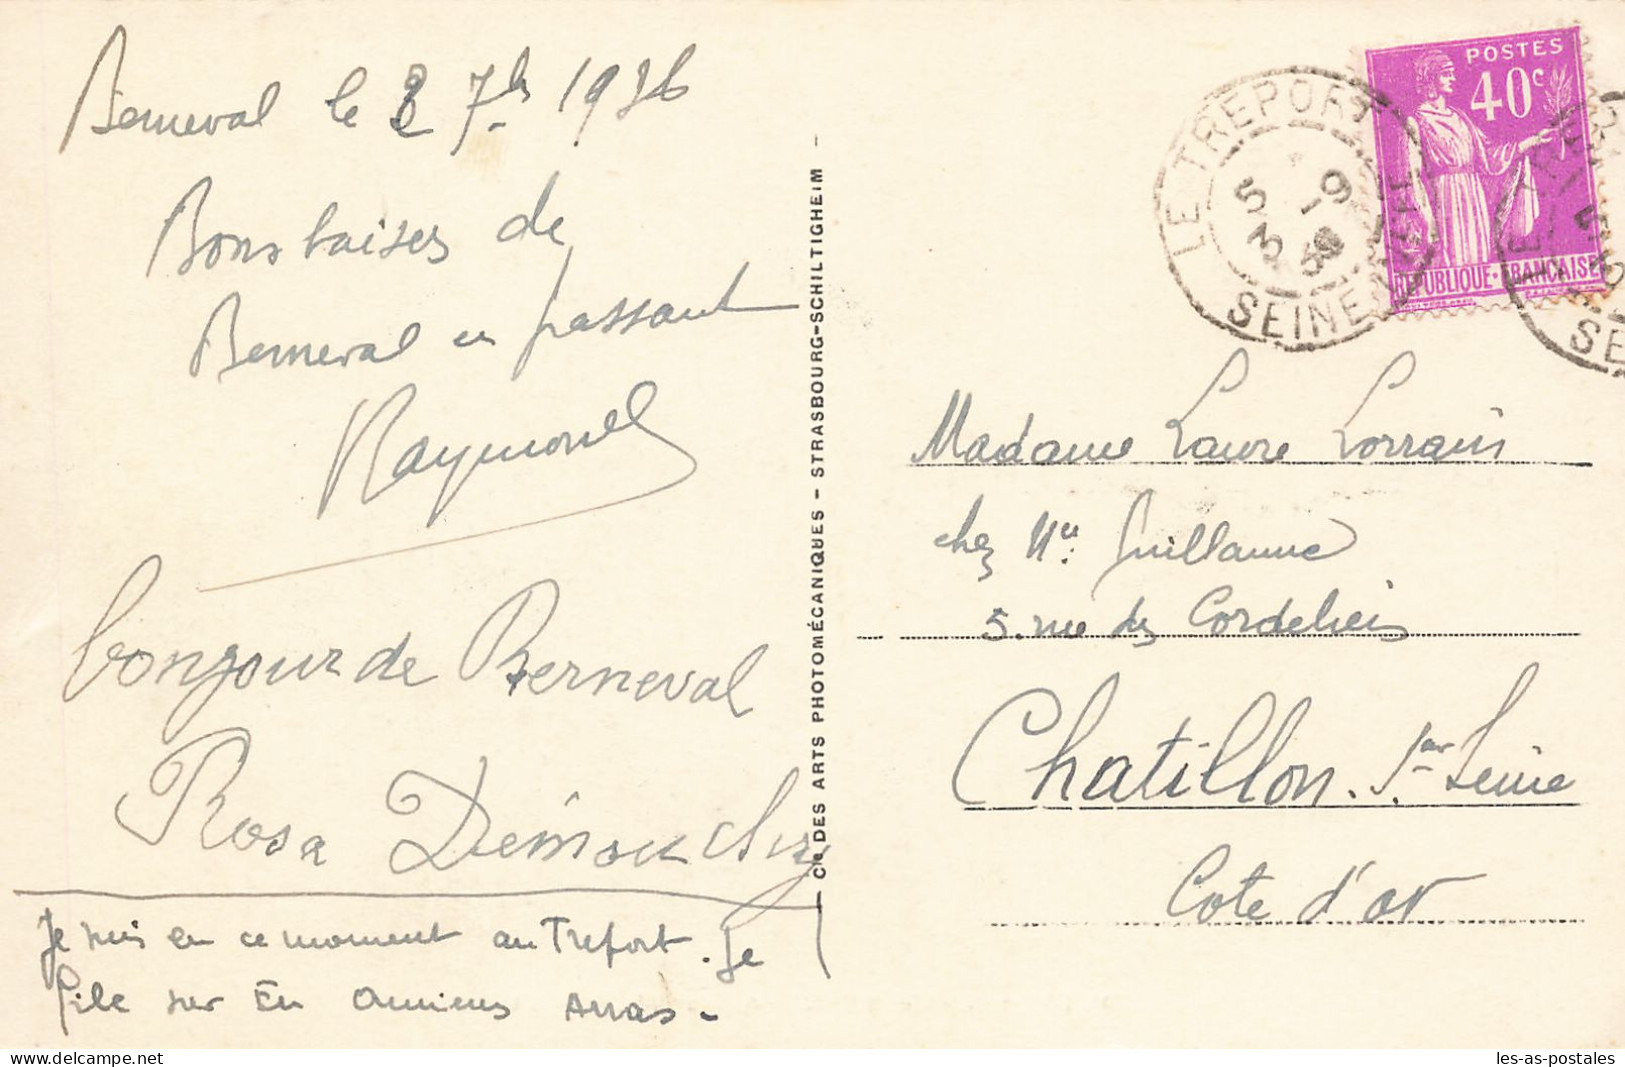 Berneval le 7bre 1936
Bons baisers de
Berneval en passant
Raymonde
bonjour de Berneval
Rosa Demouchy
Je suis en ce moment au Treport. Je
file sur Eu Amiens Arras -
Cie DES ARTS PHOTOMÉCANIQUES - STRASBOURG-SCHILTIGHEIM -
POSTES
40c
REPUBLIQUE·FRANCAISE
LE TREPORT
5-9
SEINE
SE
Madame Laure Lorrain
chez Guillaume
5. rue des Cordeliers
Chatillon. Sur Seine
Cote d'or
les-as-postales